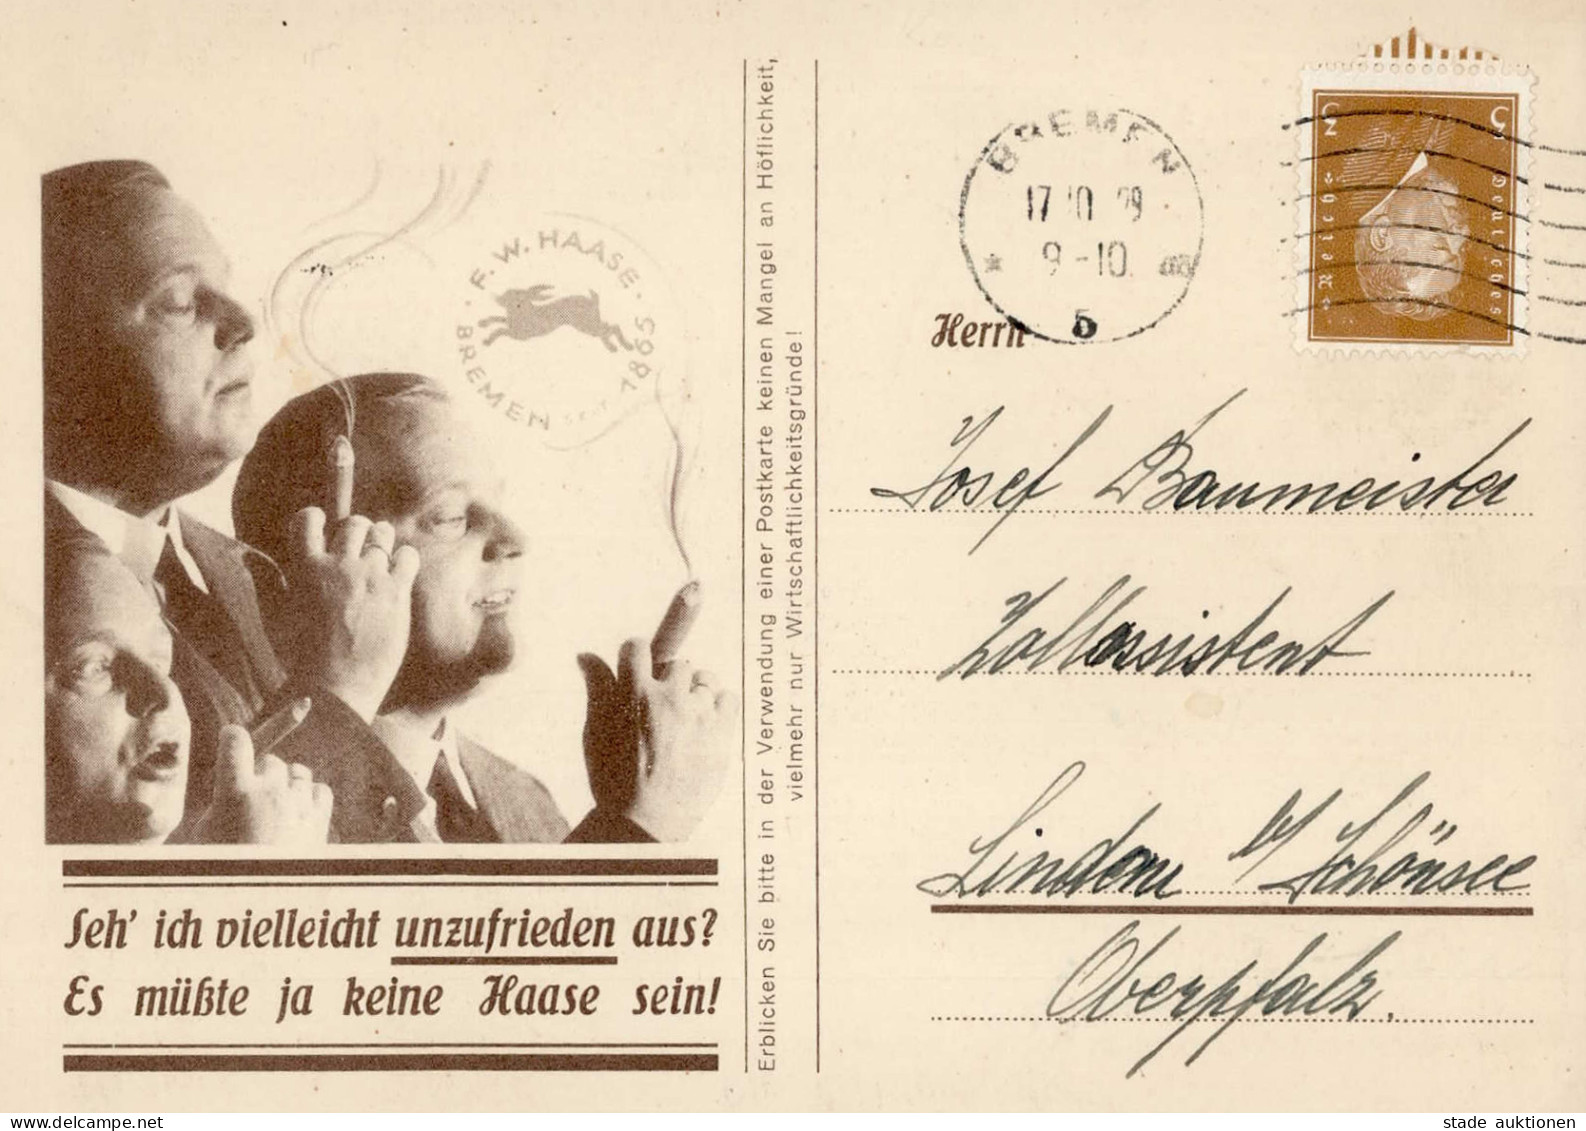 F. W. HAASE
BREMEN SEIT 1865
Seh' ich vielleicht unzufrieden aus?
Es müßte ja keine Haase sein!
Erblicken Sie bitte in der Verwendung einer Postkarte keinen Mangel an Höflichkeit,
vielmehr nur Wirtschaftlichkeitsgründe!
BREMEN
17 10 29
9-10
5
3
3
Deutsches
Reich
Herrn
Josef Baumeister
Zollassistent
Lindau b/ Schönsee
Oberpfalz.
stade auktionen